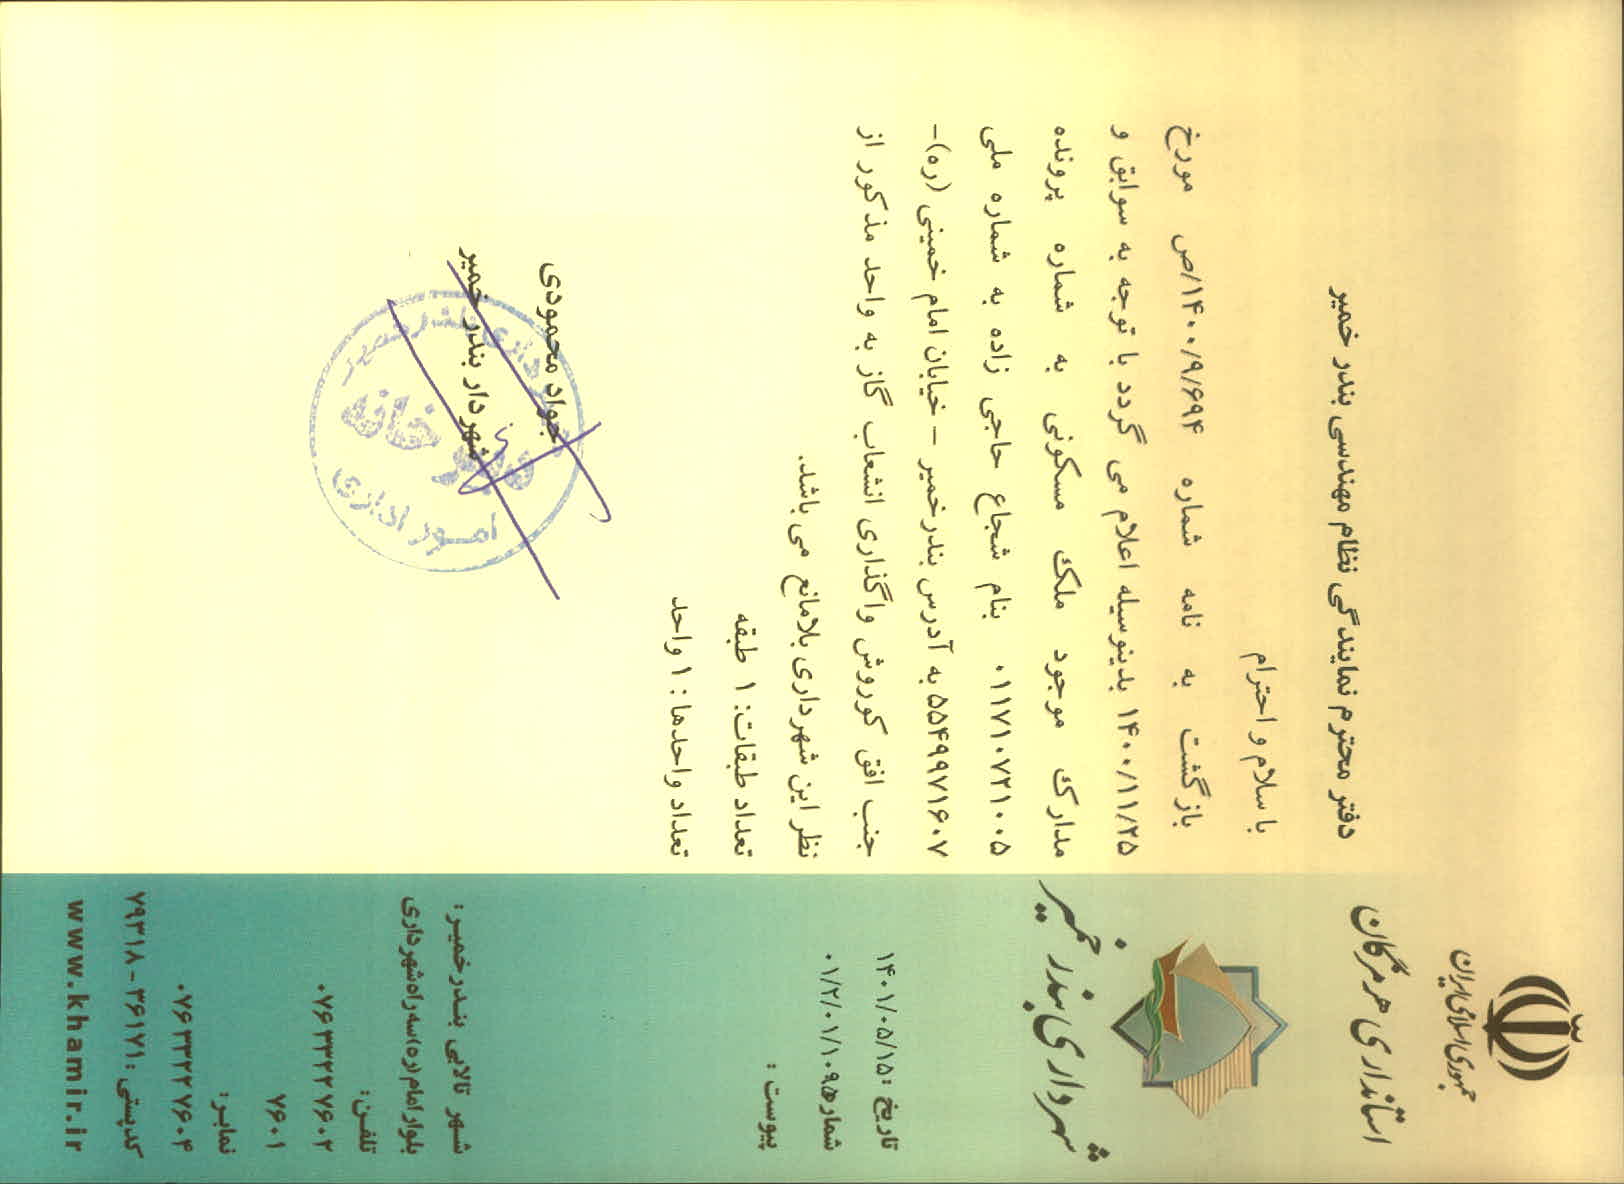 جمهوری اسلامی ایران
استانداری هرمزگان
شهرداری بندر خمیر
تاریخ : ۱۴۰۱/۰۵/۱۵
شماره: ۰۱/۲/۰۱/۱۰۹۵
پیوست :
شهر تالابی بندرخمیر :
بلوار امام (ره) سه راه شهرداری
تلفن:
۰۷۶۳۳۳۲۷۶۰۲
۷۶۰۱
نمابر:
۰۷۶۳۳۳۲۷۶۰۴
کدپستی : ۳۶۱۷۱ - ۷۹۳۱۸
www.khamir.ir
دفتر محترم نمایندگی نظام مهندسی بندر خمیر
با سلام و احترام
بازگشت به نامه شماره ۱۴۰۰/۹/۶۹۴/ص مورخ
۱۴۰۰/۱۱/۲۵ بدینوسیله اعلام می گردد با توجه به سوابق و
مدارک موجود ملک مسکونی به شماره پرونده
۰۱۱۷۱۰۷۲۱۰۰۵ بنام شجاع حاجی زاده به شماره ملی
۵۵۴۹۹۷۱۶۰۷ به آدرس بندرخمیر - خیابان امام خمینی (ره)-
جنب افق کوروش واگذاری انشعاب گاز به واحد مذکور از
نظر این شهرداری بلامانع می باشد.
تعداد طبقات: ۱ طبقه
تعداد واحدها : ۱ واحد
جواد محمودی
شهردار بندر خمیر
شهرداری بندر خمیر
دبیرخانه
امور اداری